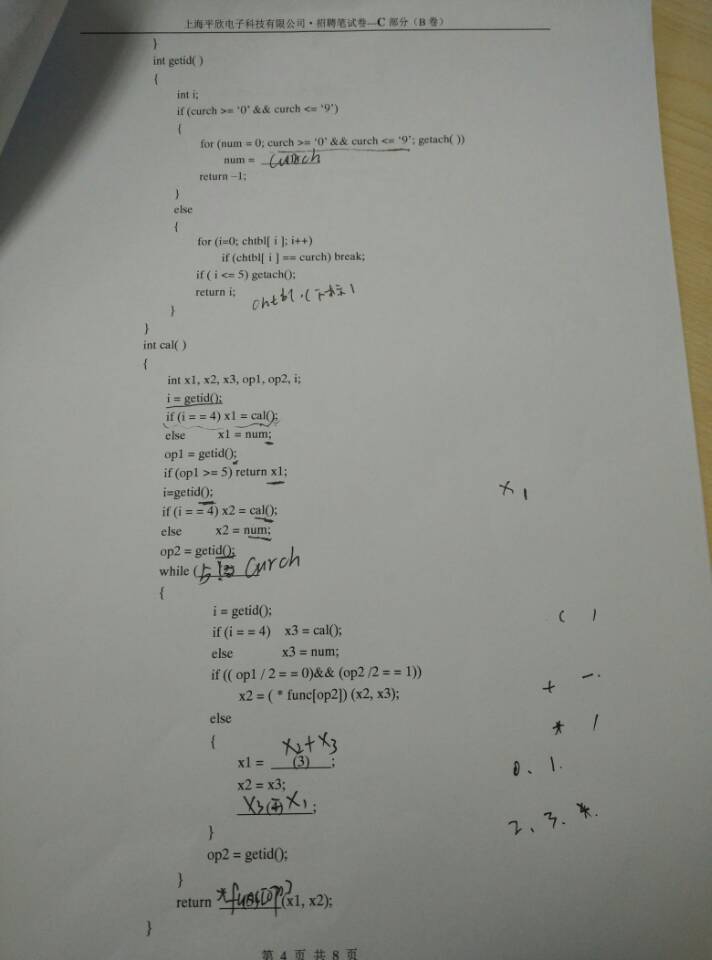 上海平欣电子科技有限公司·招聘笔试卷—C 部分（B 卷）
}
int getid( )
{
int i;
if (curch >= ‘0’ && curch <= ‘9’)
{
for (num = 0; curch >= ‘0’ && curch <= ‘9’; getach( ))
num = curch
return –1;
}
else
{
for (i=0; chtbl[ i ]; i++)
if (chtbl[ i ] == curch) break;
if ( i <= 5) getach();
return i;
chtbl
}
}
int cal( )
{
int x1, x2, x3, op1, op2, i;
i = getid();
if (i = = 4) x1 = cal();
else x1 = num;
op1 = getid();
if (op1 >= 5) return x1;
i=getid();
x1
if (i = = 4) x2 = cal();
else x2 = num;
op2 = getid();
while ( curch
{
i = getid();
( )
if (i = = 4) x3 = cal();
else x3 = num;
if (( op1 / 2 = = 0)&& (op2 /2 = = 1))
+ -
x2 = ( * func[op2]) (x2, x3);
else
* /
{
x2+x3
x1 = (3) ;
0、1.
x2 = x3;
x3 x1 ;
2、3、*.
}
op2 = getid();
}
return (x1, x2);
}
第 4 页 共 8 页